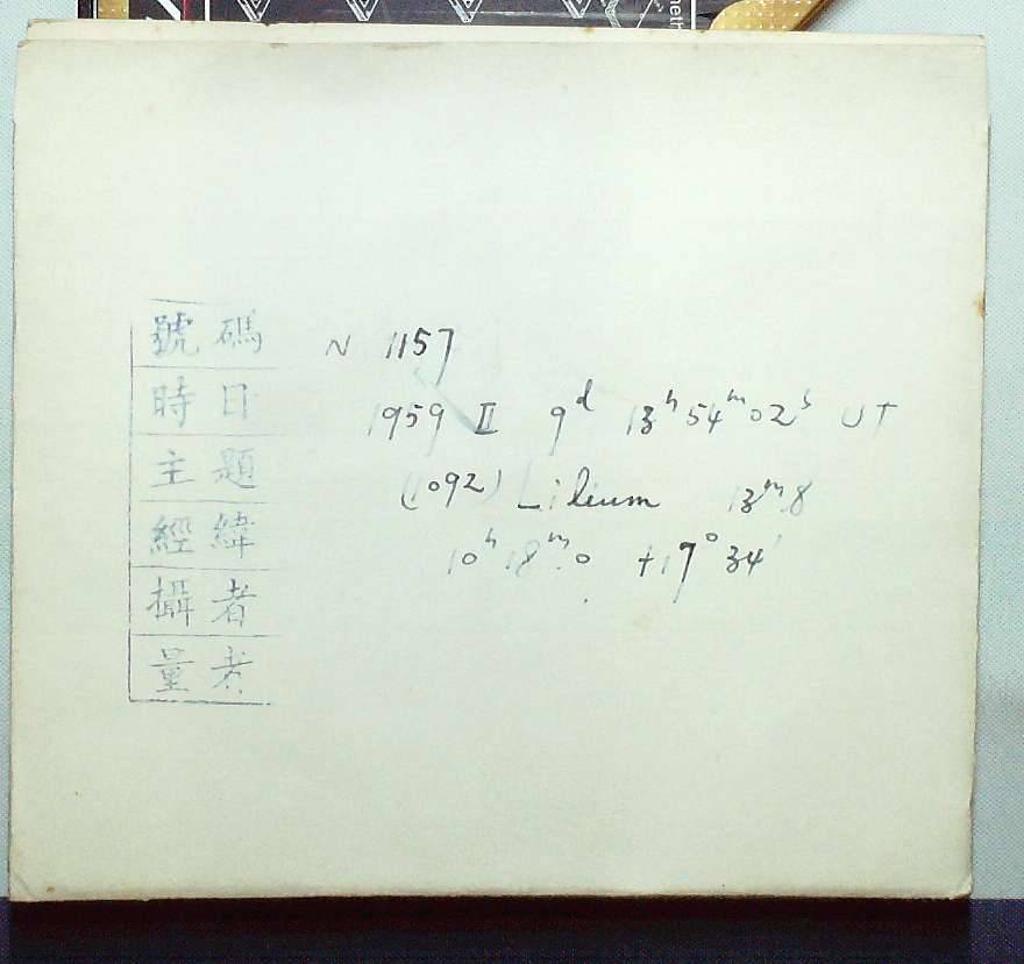 號碼 N 1157
時日 1959 II 9ᵈ 13ʰ 54ᵐ 02ˢ UT
主題 (1092) Lilium 13ᵐ.8
經緯 10ʰ 18ᵐ.0 +17° 34′
攝者
量者